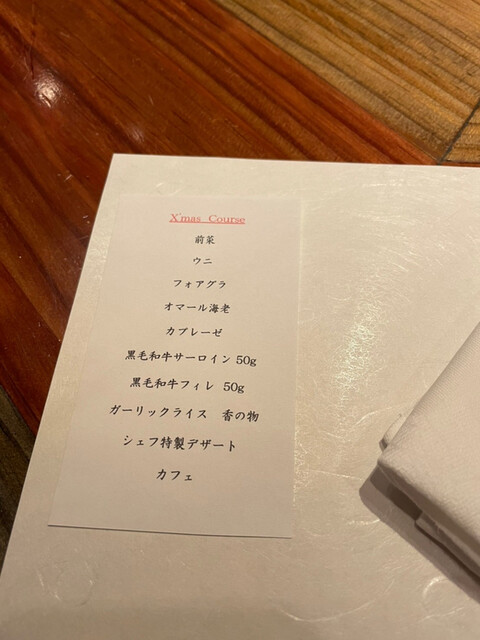 X'mas Course
前菜
ウニ
フォアグラ
オマール海老
カプレーゼ
黒毛和牛サーロイン50g
黒毛和牛フィレ 50g
ガーリックライス 香の物
シェフ特製デザート
カフェ